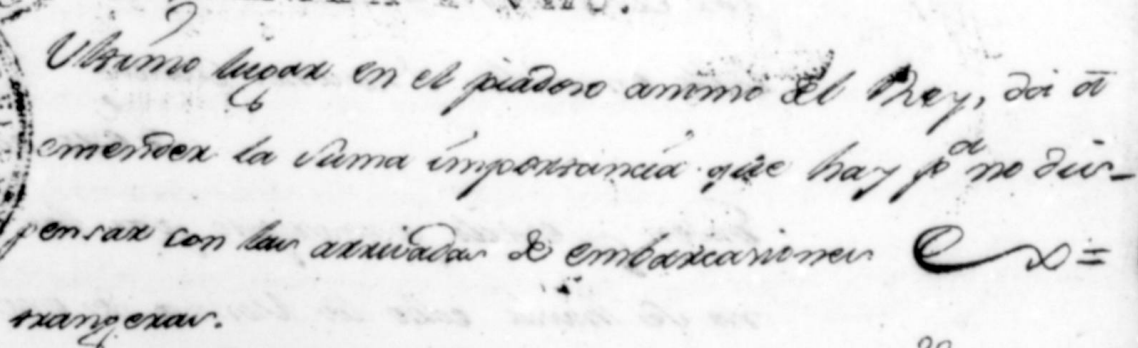 Ultimo lugar en el piadoso animo del Rey, doi á
entender la suma importancia que hay pa no dis-
pensar con las arrivadas de embarcaciones Ex=
trangeras.